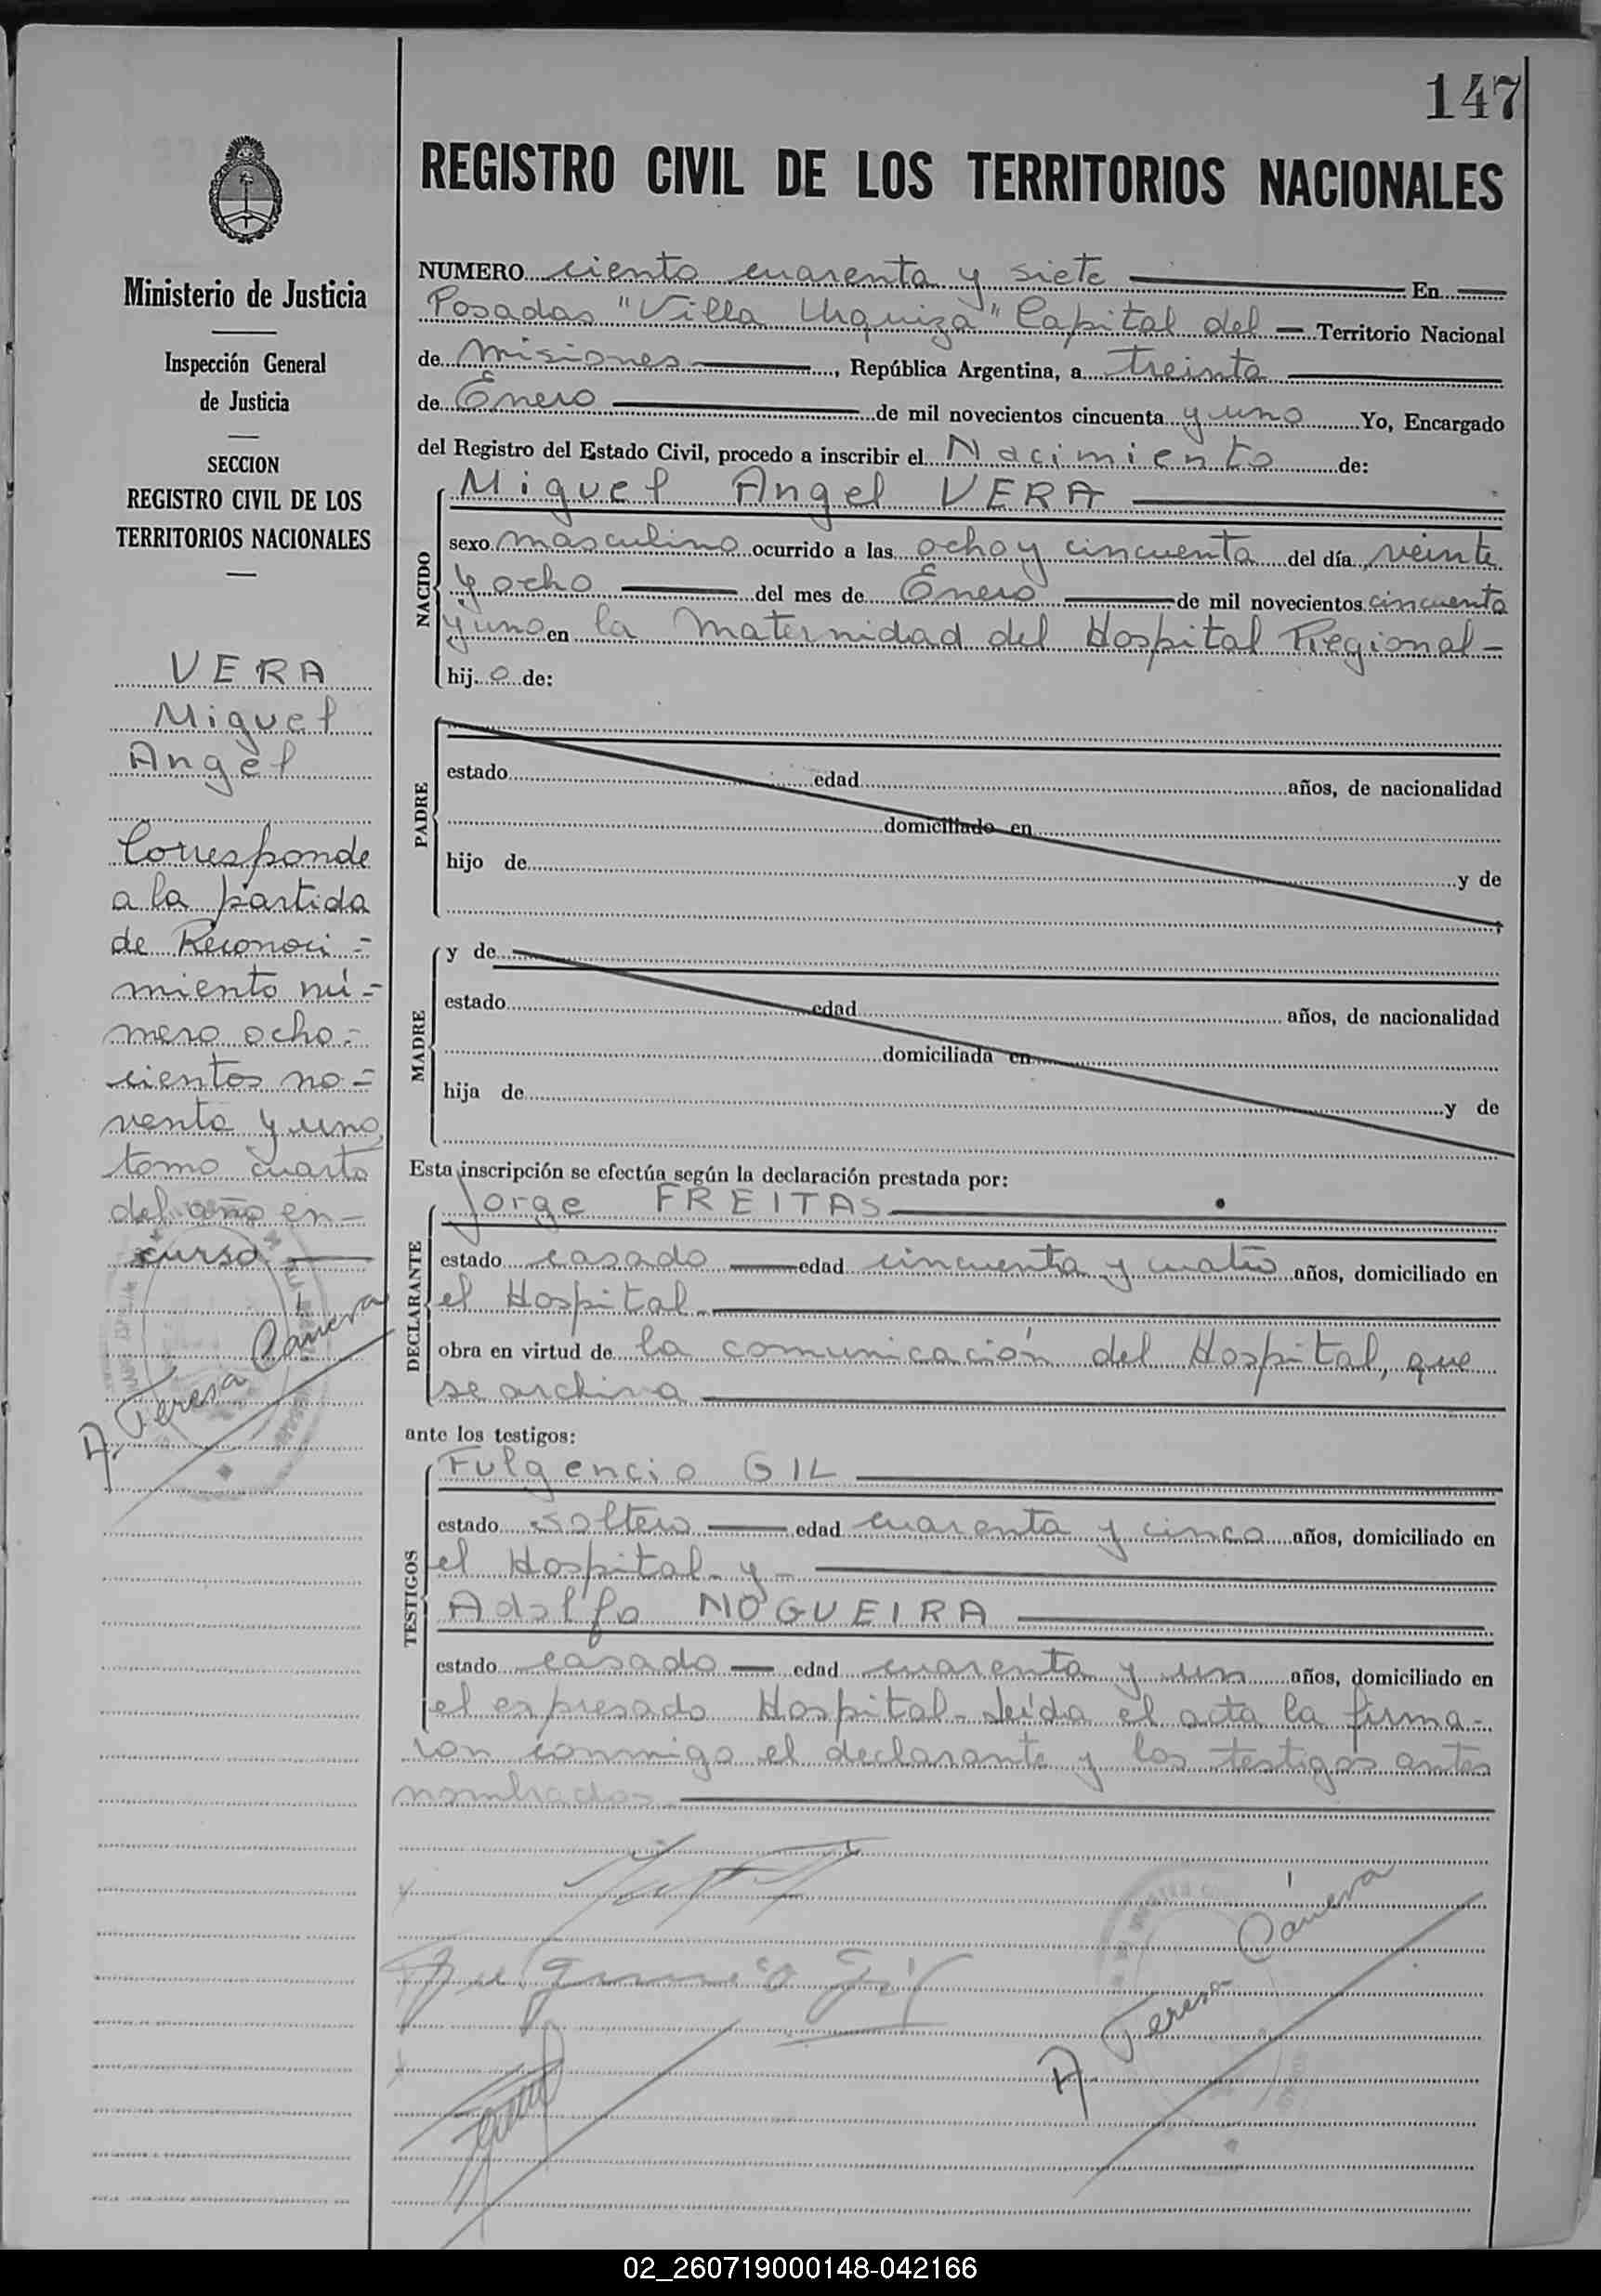 147
REGISTRO CIVIL DE LOS TERRITORIOS NACIONALES
Ministerio de Justicia
Inspección General
de Justicia
SECCION
REGISTRO CIVIL DE LOS
TERRITORIOS NACIONALES
VERA
Miguel
Angel
Corresponde
a la partida
de Reconoci=
miento nú=
mero ocho=
cientos no=
venta y uno
tomo cuarto
del año en-
curso
A. Teresa Cánera
NUMERO ciento cuarenta y siete En
Posadas "Villa Urquiza" Capital del Territorio Nacional
de Misiones, República Argentina, a treinta
de Enero de mil novecientos cincuenta y uno Yo, Encargado
del Registro del Estado Civil, procedo a inscribir el Nacimiento de:
NACIDO
Miguel Angel VERA
sexo masculino ocurrido a las ocho y cincuenta del día veinte
y ocho del mes de Enero de mil novecientos cincuenta
y uno en la Maternidad del Hospital Regional-
hijo de:
PADRE
estado edad años, de nacionalidad
domiciliado en
hijo de y de
MADRE
y de
estado edad años, de nacionalidad
domiciliada en
hija de y de
Esta inscripción se efectúa según la declaración prestada por:
DECLARANTE
Jorge FREITAS
estado casado edad cincuenta y cuatro años, domiciliado en
el Hospital
obra en virtud de la comunicación del Hospital, que
se archiva
ante los testigos:
TESTIGOS
Fulgencio GIL
estado soltero edad cuarenta y cinco años, domiciliado en
el Hospital- y-
Adolfo NOGUEIRA
estado casado edad cuarenta y un años, domiciliado en
el expresado Hospital- Leída el acta la firma-
ron conmigo el declarante y los testigos antes
nombrados
Fulgencio Gil
A. Teresa Cánera
02_260719000148-042166